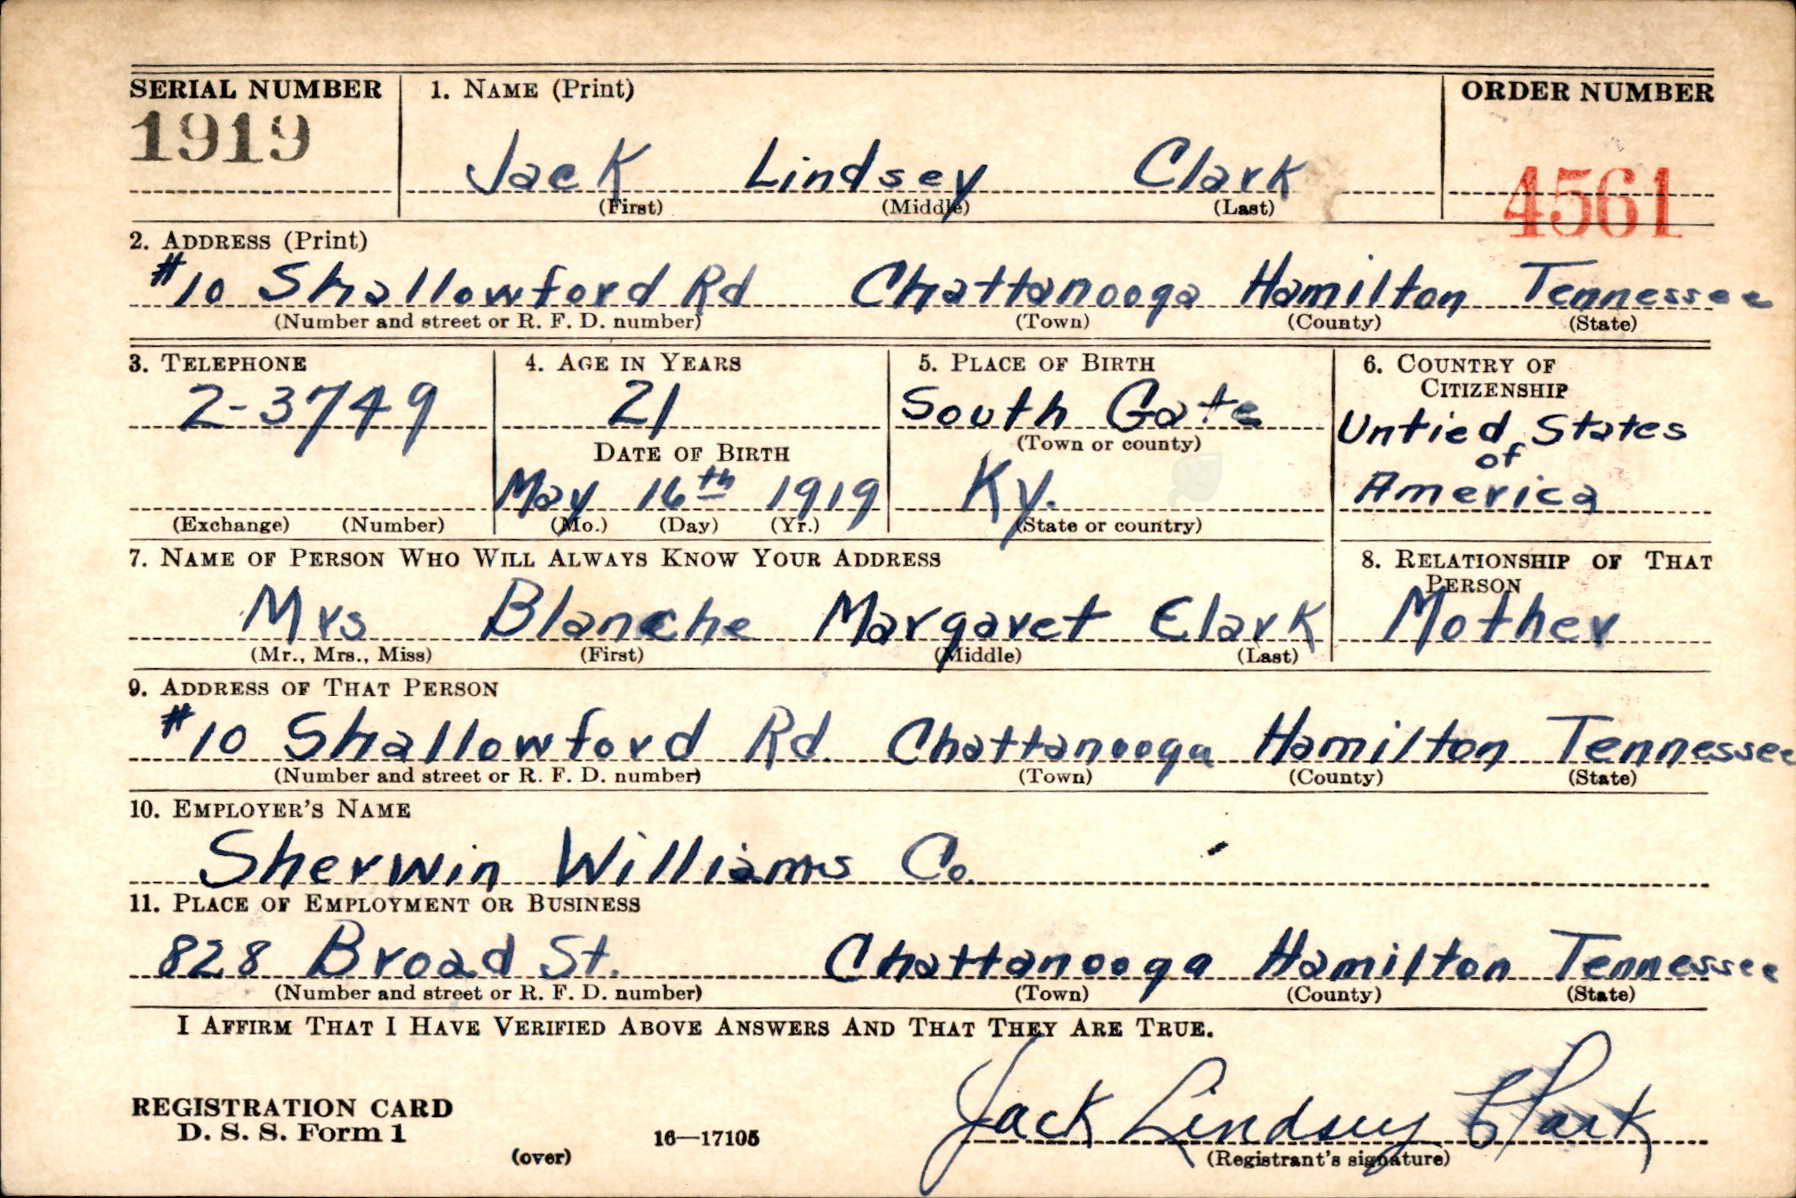 SERIAL NUMBER 1. NAME (Print) ORDER NUMBER
1919
Jack Lindsey Clark
4561
(First) (Middle) (Last)
2. ADDRESS (Print)
#10 Shallowford Rd Chattanooga Hamilton Tennessee
(Number and street or R. F. D. number) (Town) (County) (State)
3. TELEPHONE 4. AGE IN YEARS 5. PLACE OF BIRTH 6. COUNTRY OF
CITIZENSHIP
2-3749 21 South Gate Untied States
DATE OF BIRTH (Town or county) of
May 16th 1919 Ky. America
(Exchange) (Number) (Mo.) (Day) (Yr.) (State or country)
7. NAME OF PERSON WHO WILL ALWAYS KNOW YOUR ADDRESS 8. RELATIONSHIP OF THAT
PERSON
Mrs Blanche Margaret Clark Mother
(Mr., Mrs., Miss) (First) (Middle) (Last)
9. ADDRESS OF THAT PERSON
#10 Shallowford Rd. Chattanooga Hamilton Tennessee
(Number and street or R. F. D. number) (Town) (County) (State)
10. EMPLOYER'S NAME
Sherwin Williams Co.
11. PLACE OF EMPLOYMENT OR BUSINESS
828 Broad St. Chattanooga Hamilton Tennessee
(Number and street or R. F. D. number) (Town) (County) (State)
I AFFIRM THAT I HAVE VERIFIED ABOVE ANSWERS AND THAT THEY ARE TRUE.
REGISTRATION CARD
D. S. S. Form 1
Jack Lindsey Clark
(over) 16—17105 (Registrant's signature)